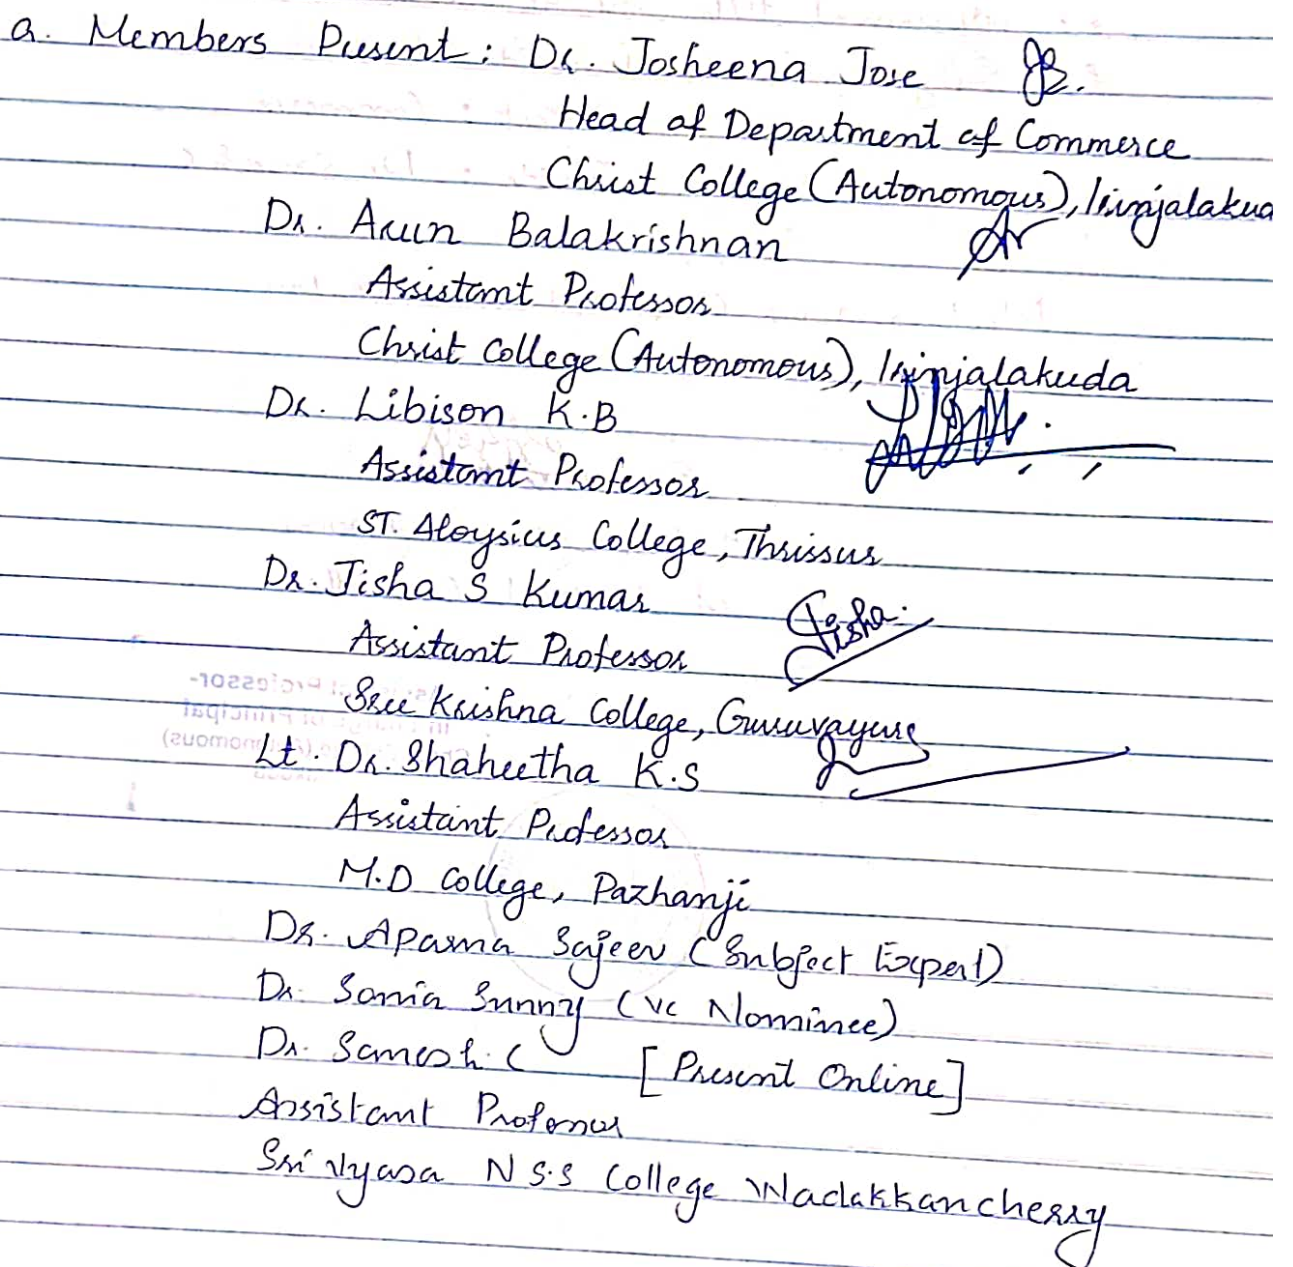 a. Members Present: Dr. Josheena Jose
Head of Department of Commerce
Christ College (Autonomous), Irinjalakuda
Dr. Arun Balakrishnan
Assistant Professor
Christ College (Autonomous), Irinjalakuda
Dr. Libison K.B
Assistant Professor
ST. Aloysius College, Thrissur
Dr. Jisha S Kumar
Jisha.
Assistant Professor
Sree Krishna College, Guruvayur
Lt. Dr. Shaheetha K.S
Assistant Professor
M.D College, Pazhanji
Dr. Aparna Sajeev (Subject Expert)
Dr. Sonia Sunny (VC Nominee)
Dr. C [Present Online]
Assistant Professor
Sri Vyasa N S.S College Wadakkancherry